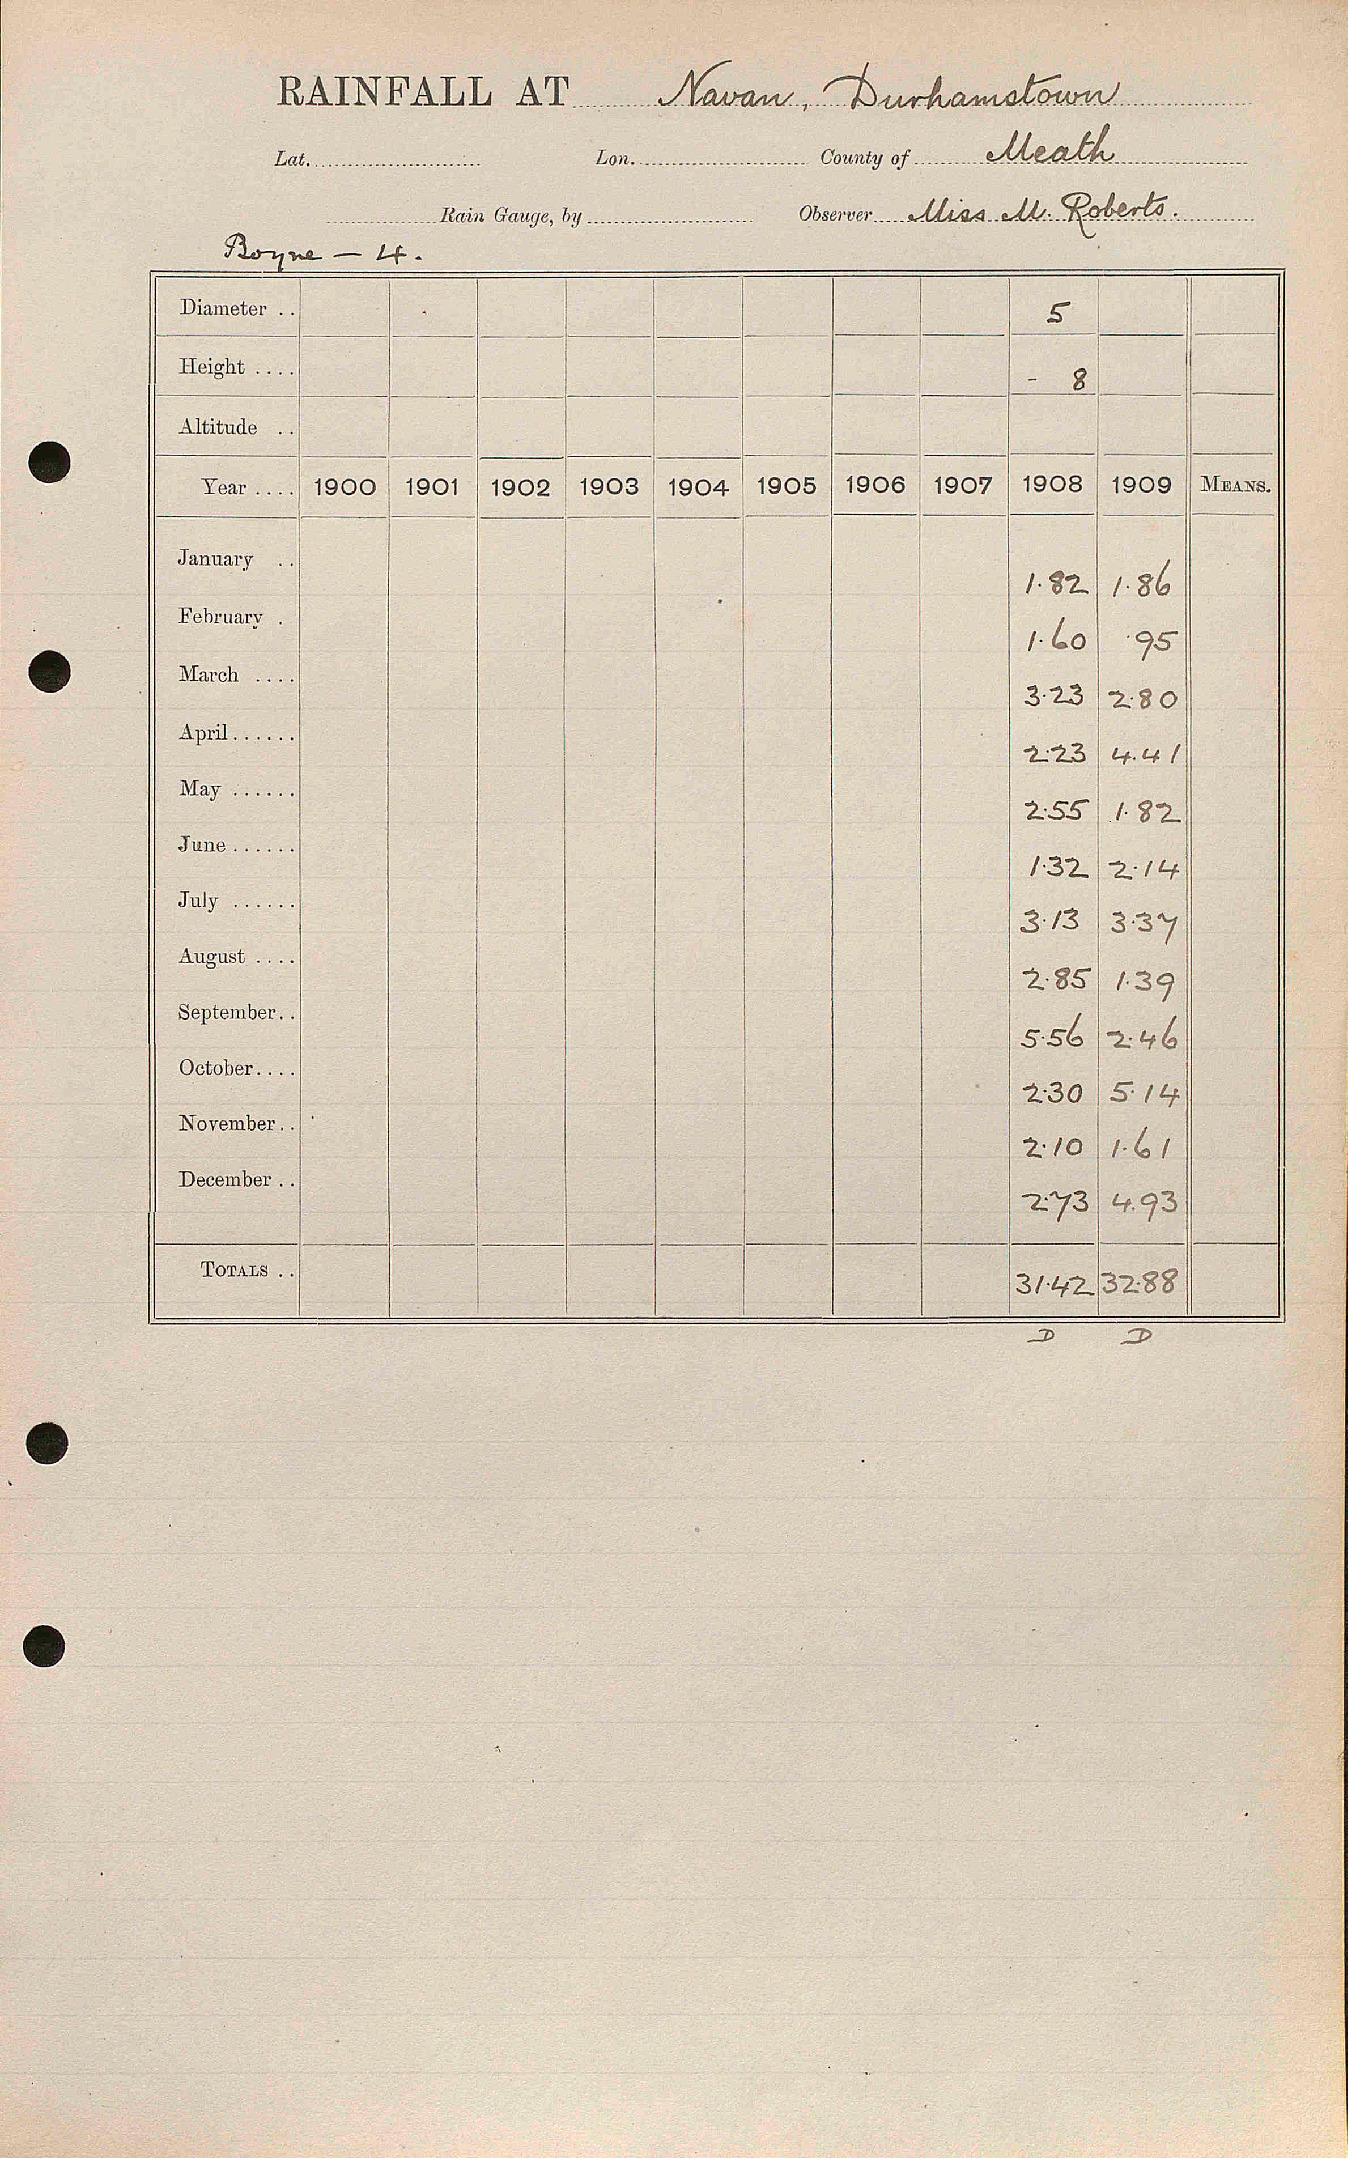 RAINFALL AT Navan, Durhamstown
Lat. Lon. County of Meath
Rain Gauge, by Observer Miss M. Roberts.
Boyne — 4.
Diameter .. 5
Height .... - 8
Altitude ..
Year .... 1900 1901 1902 1903 1904 1905 1906 1907 1908 1909 MEANS.
January .. 1.82 1.86
February . 1.60 .95
March .... 3.23 2.80
April ...... 2.23 4.41
May ...... 2.55 1.82
June ...... 1.32 2.14
July ...... 3.13 3.37
August .... 2.85 1.39
September .. 5.56 2.46
October .... 2.30 5.14
November .. 2.10 1.61
December .. 2.73 4.93
TOTALS .. 31.42 32.88
D D